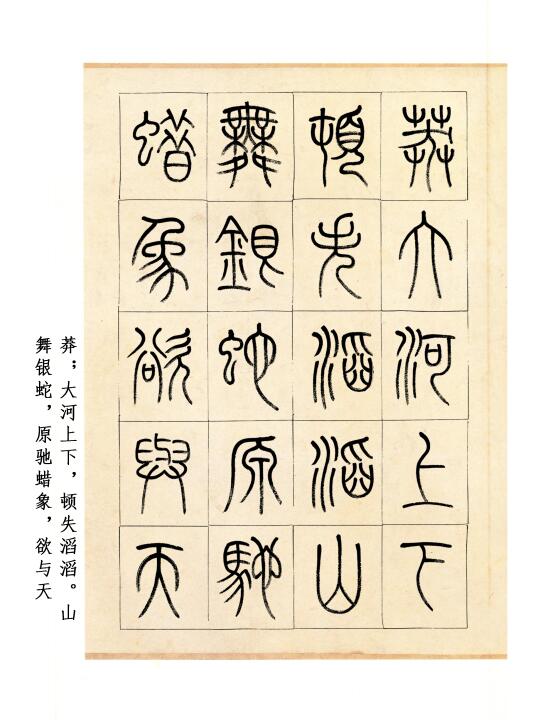 莽大河上下
顿失滔滔山
舞银蛇原驰
蜡象欲与天
莽；大河上下，顿失滔滔。山
舞银蛇，原驰蜡象，欲与天